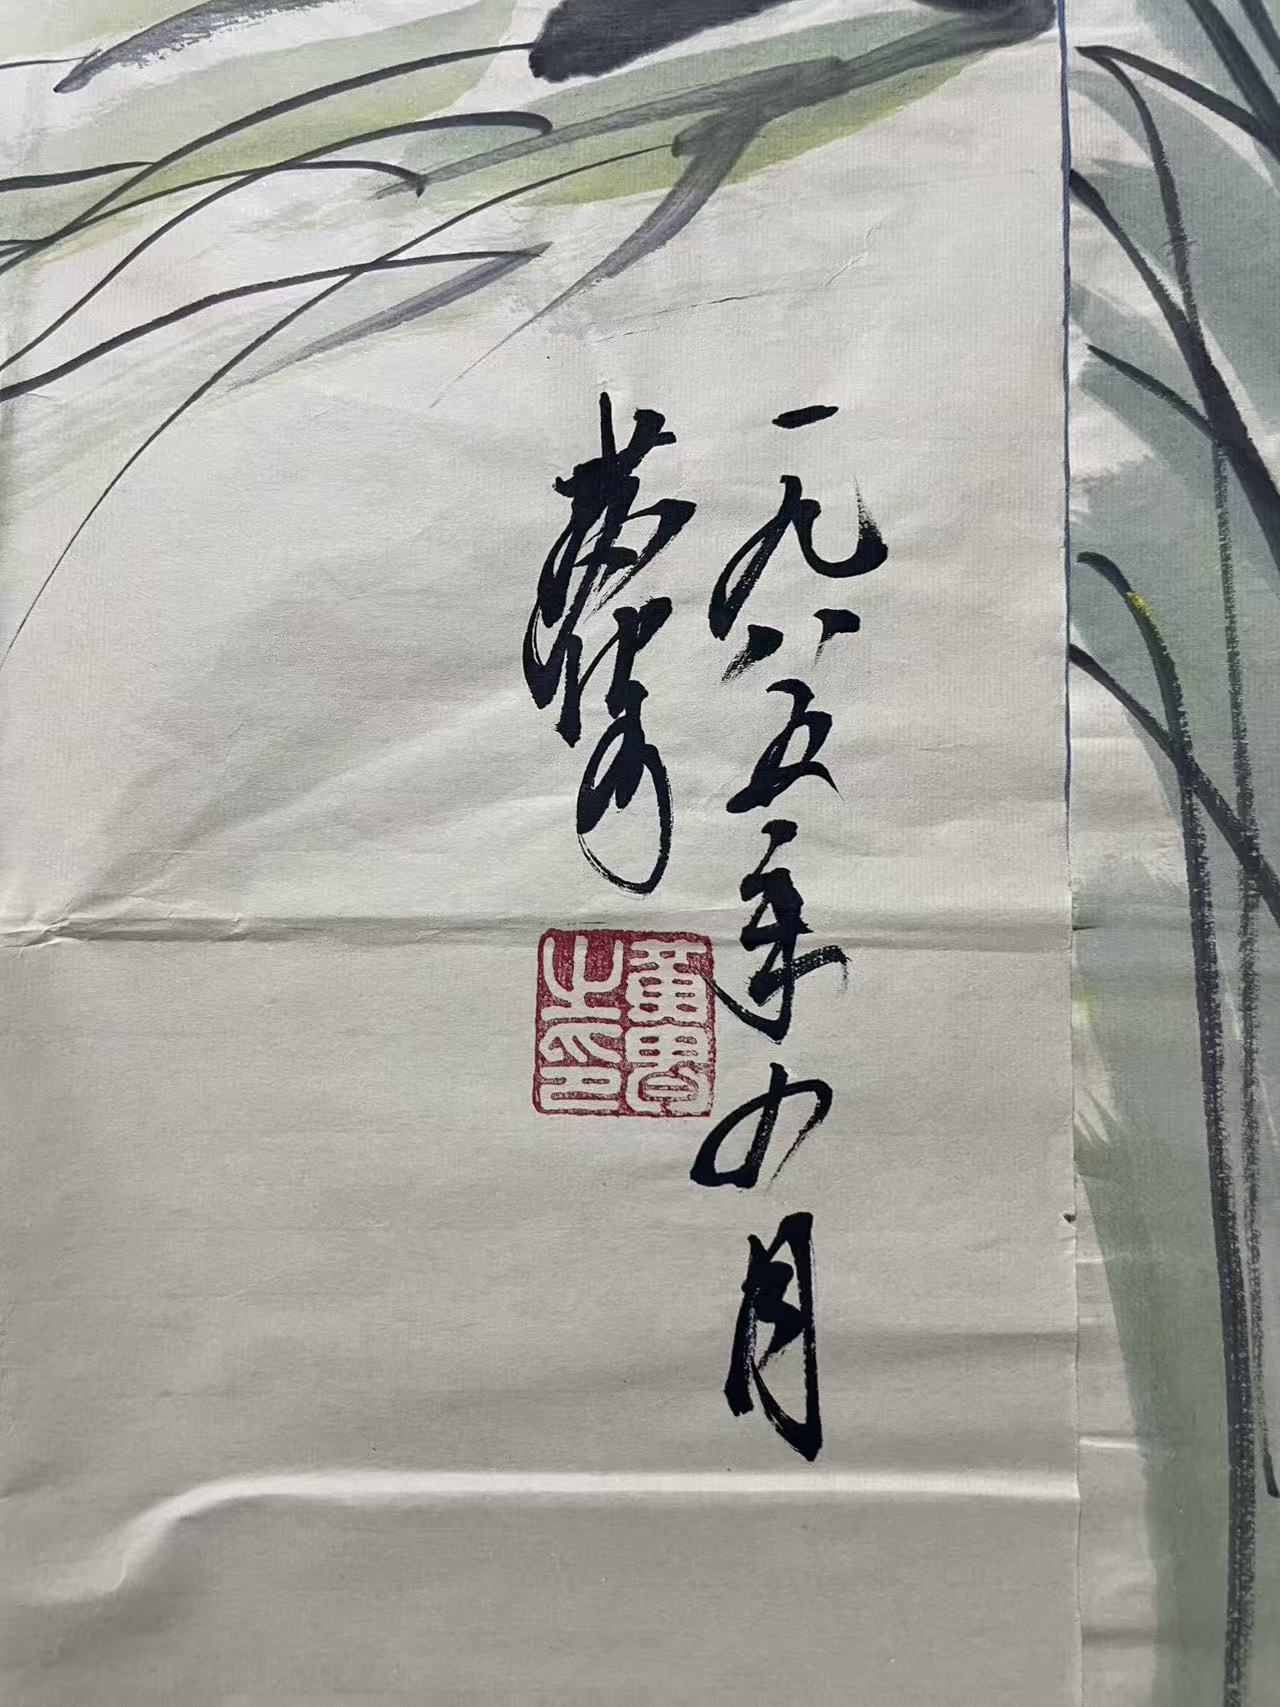 一九八五年月
黄胄
黃胄之印